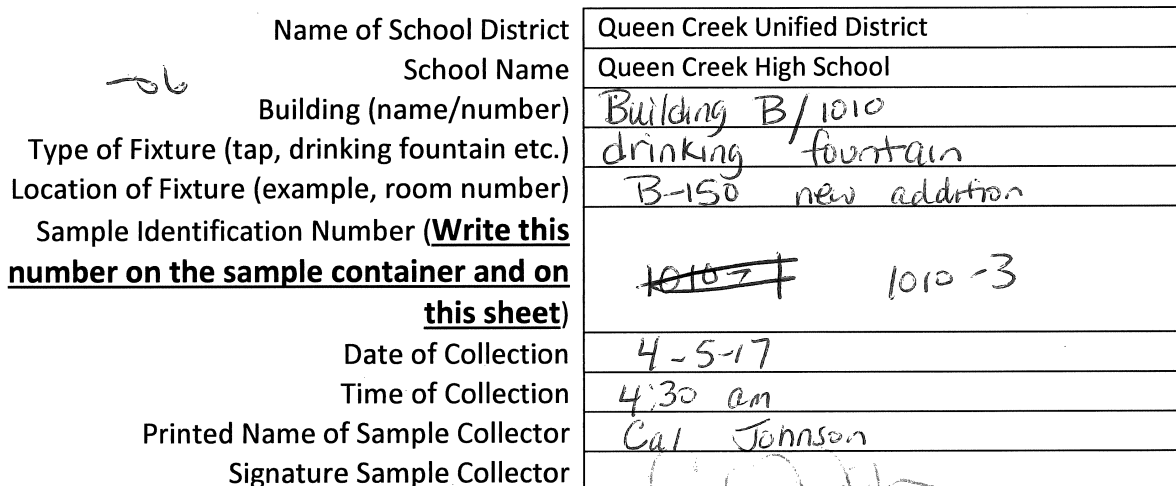 Name of School District Queen Creek Unified District
School Name Queen Creek High School
-06
Building (name/number) Building B/1010
Type of Fixture (tap, drinking fountain etc.) drinking fountain
Location of Fixture (example, room number) B-150 new addition
Sample Identification Number (Write this
number on the sample container and on 1010-3
this sheet)
Date of Collection 4-5-17
Time of Collection 4:30 am
Printed Name of Sample Collector Cal Johnson
Signature Sample Collector